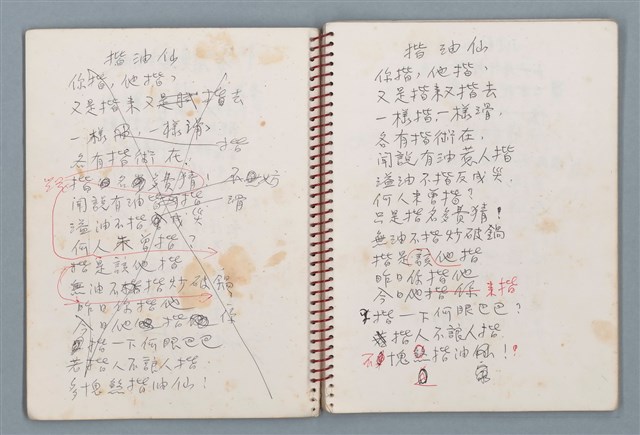 揩油仙
你揩，他揩，
又是揩來又是揩去
一樣，一樣滑
揩
各有揩術在.
揩名多費猜！不妨
聞說有油揩 滑
溢油不揩成災
何人來曾揩？
揩是該他揩
無油不揩炒破鍋
昨日你揩他
今日他揩你
揩一下何眼巴巴
若揩人不讓人揩.
多愧煞揩油仙！
揩油仙
你揩，他揩，
又是揩來又揩去
一樣揩，一樣滑，
各有揩術在.
聞說有油惹人揩
溢油不揩反成災.
何人未曾揩？
只是揩名多費猜！
無油不揩炒破鍋
揩是該他揩
昨日你揩他
今日他揩你 來揩
揩一下何眼巴巴？
若揩人不讓人揩.
不愧煞揩油仙！?